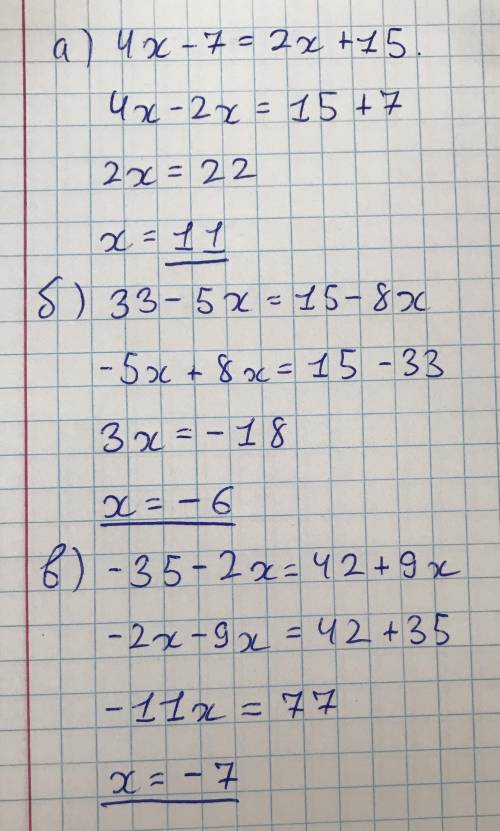 а) 4x - 7 = 2x + 15.
4x - 2x = 15 + 7
2x = 22
x = 11
б) 33 - 5x = 15 - 8x
-5x + 8x = 15 - 33
3x = -18
x = -6
в) -35 - 2x = 42 + 9x
-2x - 9x = 42 + 35
-11x = 77
x = -7